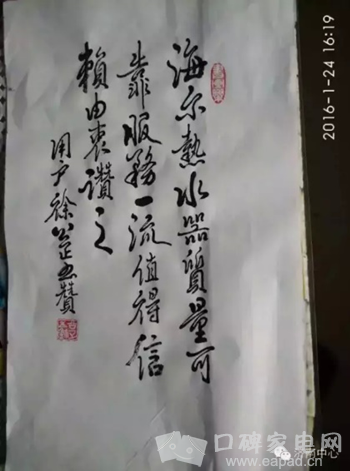 海尔熱水器質量可
靠服務一流值得信
賴由衷讚之
用户徐公正书赞
2016-1-24 16:19
口碑家电网
www.eapad.cn